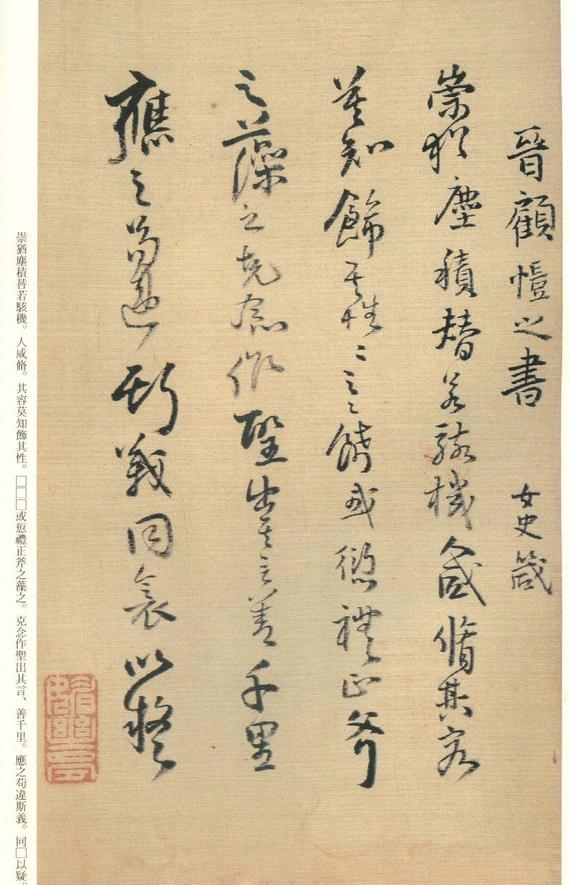 晉顧愷之書 女史箴
崇猶塵積替若駭機人咸脩其容
莫知飾其性〻之不飾或愆禮正斧
之藻之克念作聖出其言善千里
應之苟違斯義同衾以疑
崇猶塵積替若駭機。人咸脩。其容莫知飾其性。□□□或愆禮正斧之藻之。克念作聖出其言、善千里。應之苟違斯義。同□以疑。